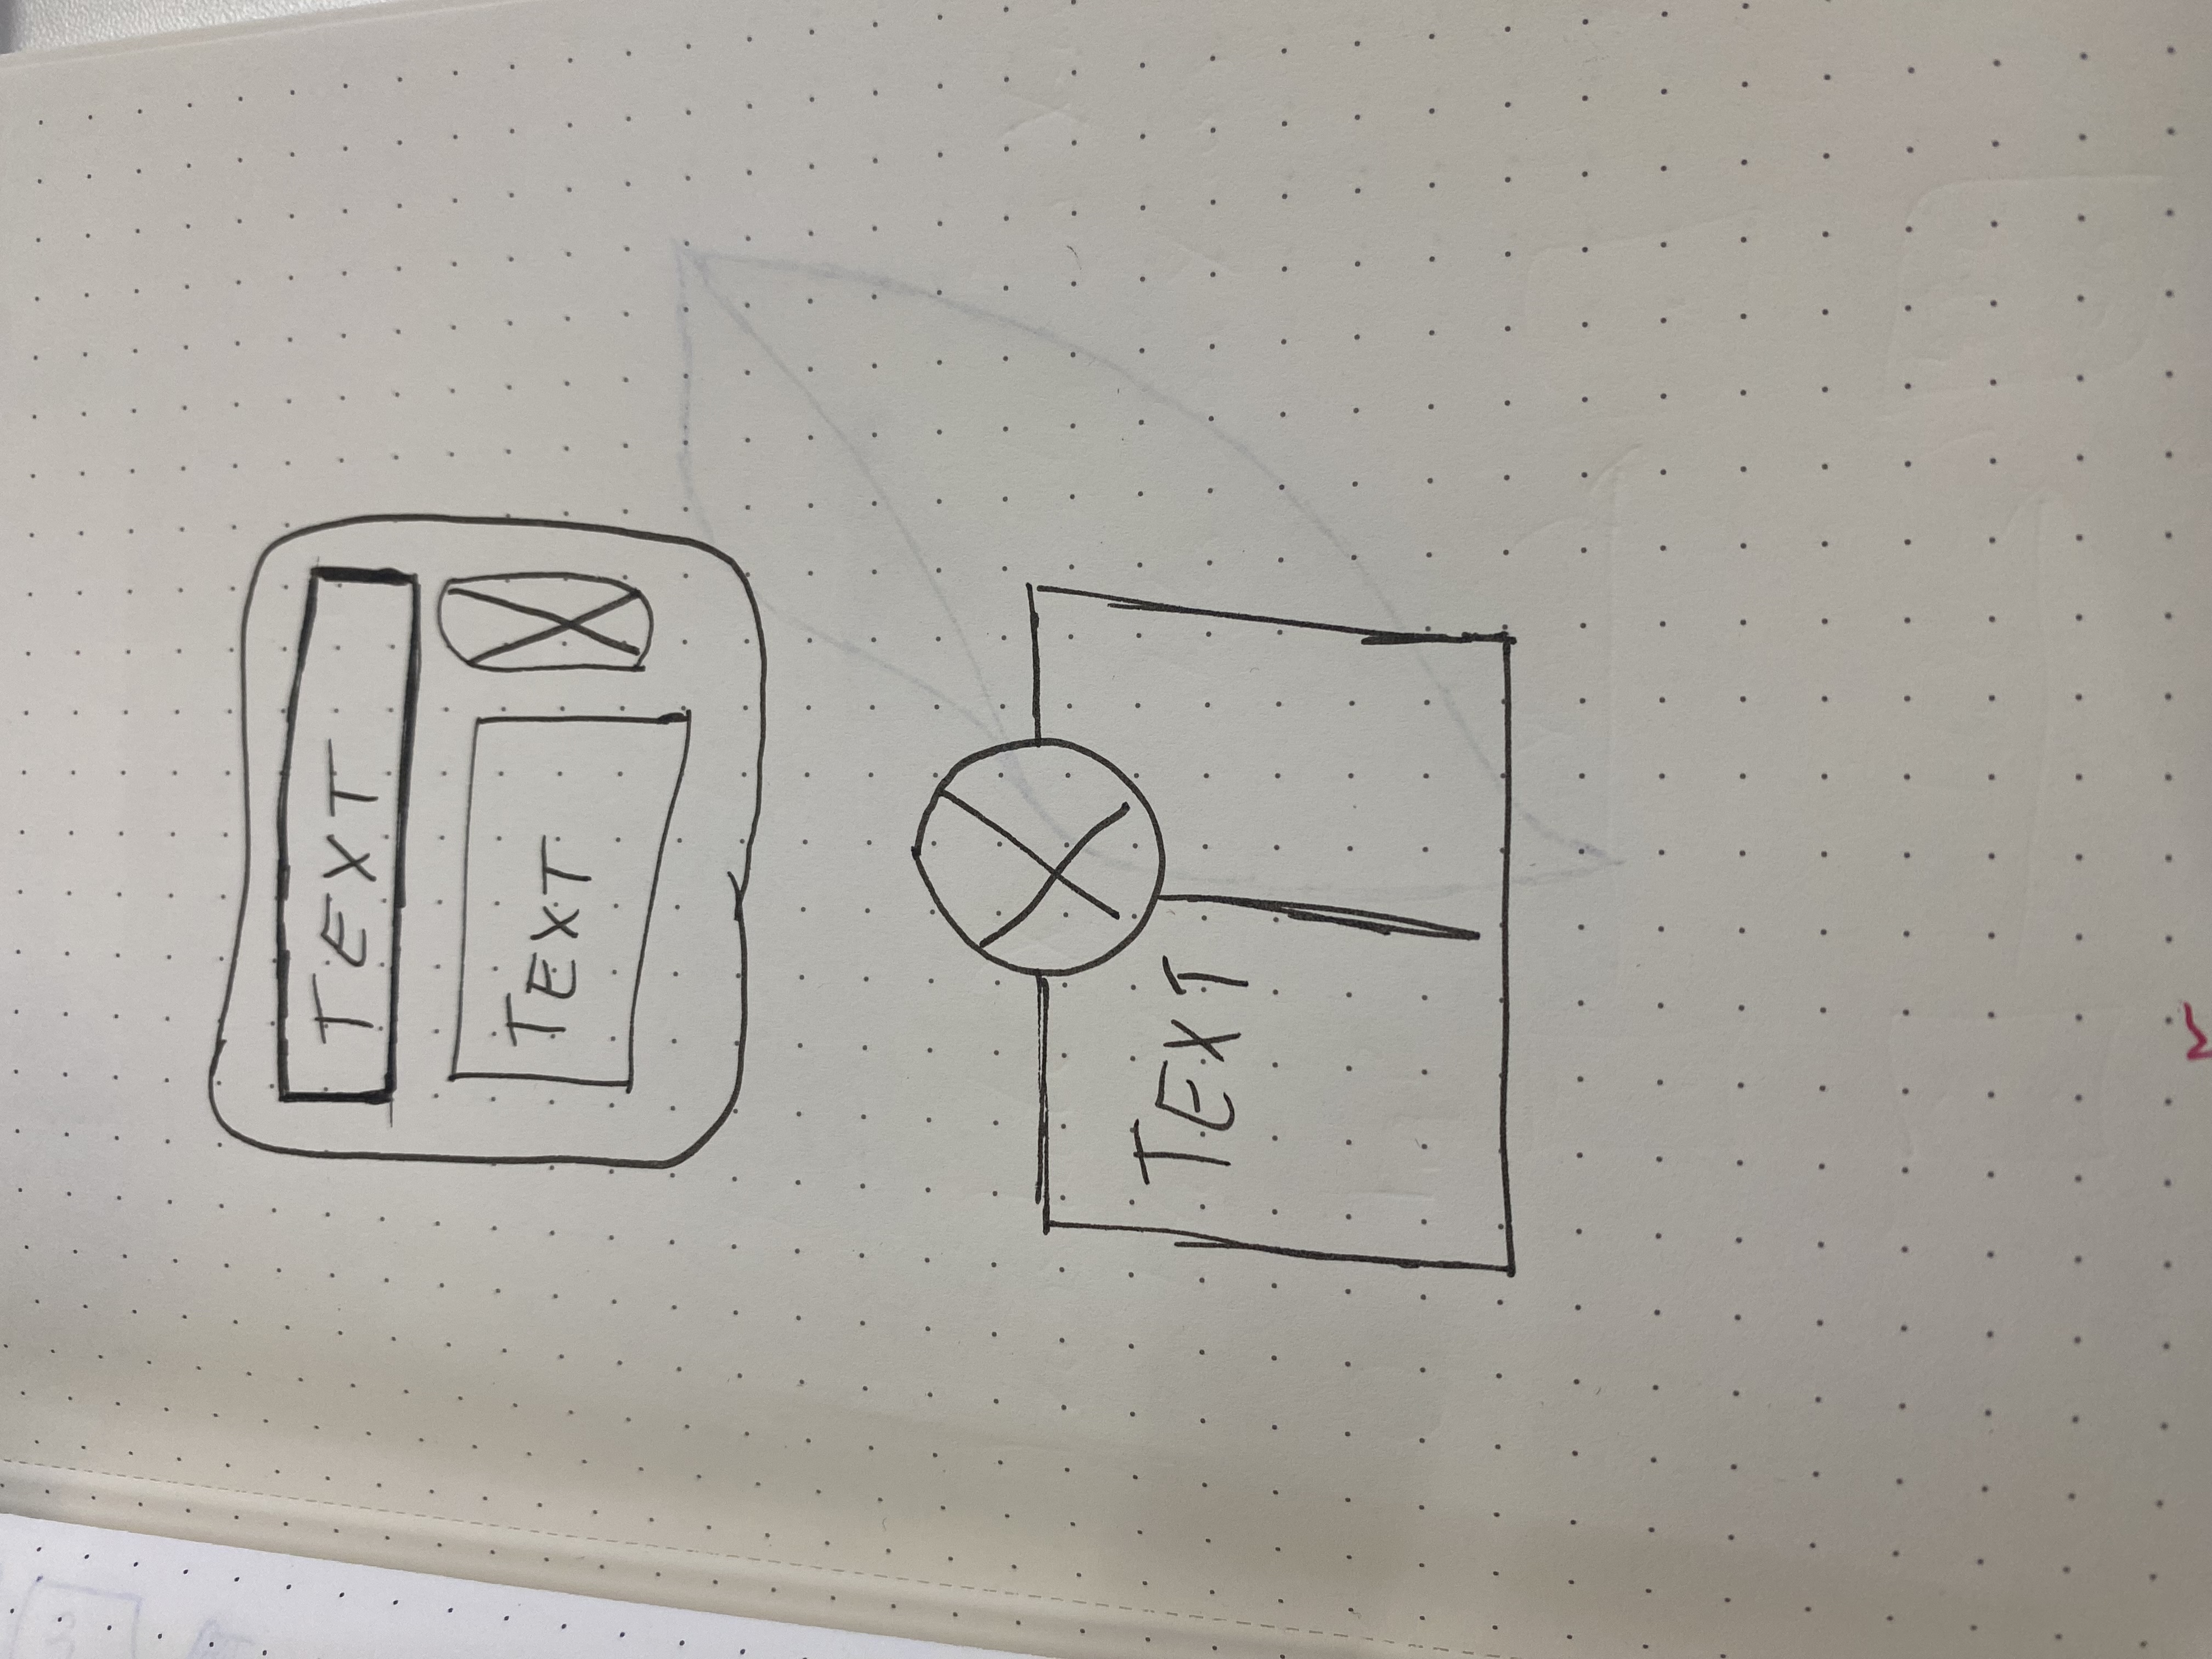 TEXT
TEXT
TEXT